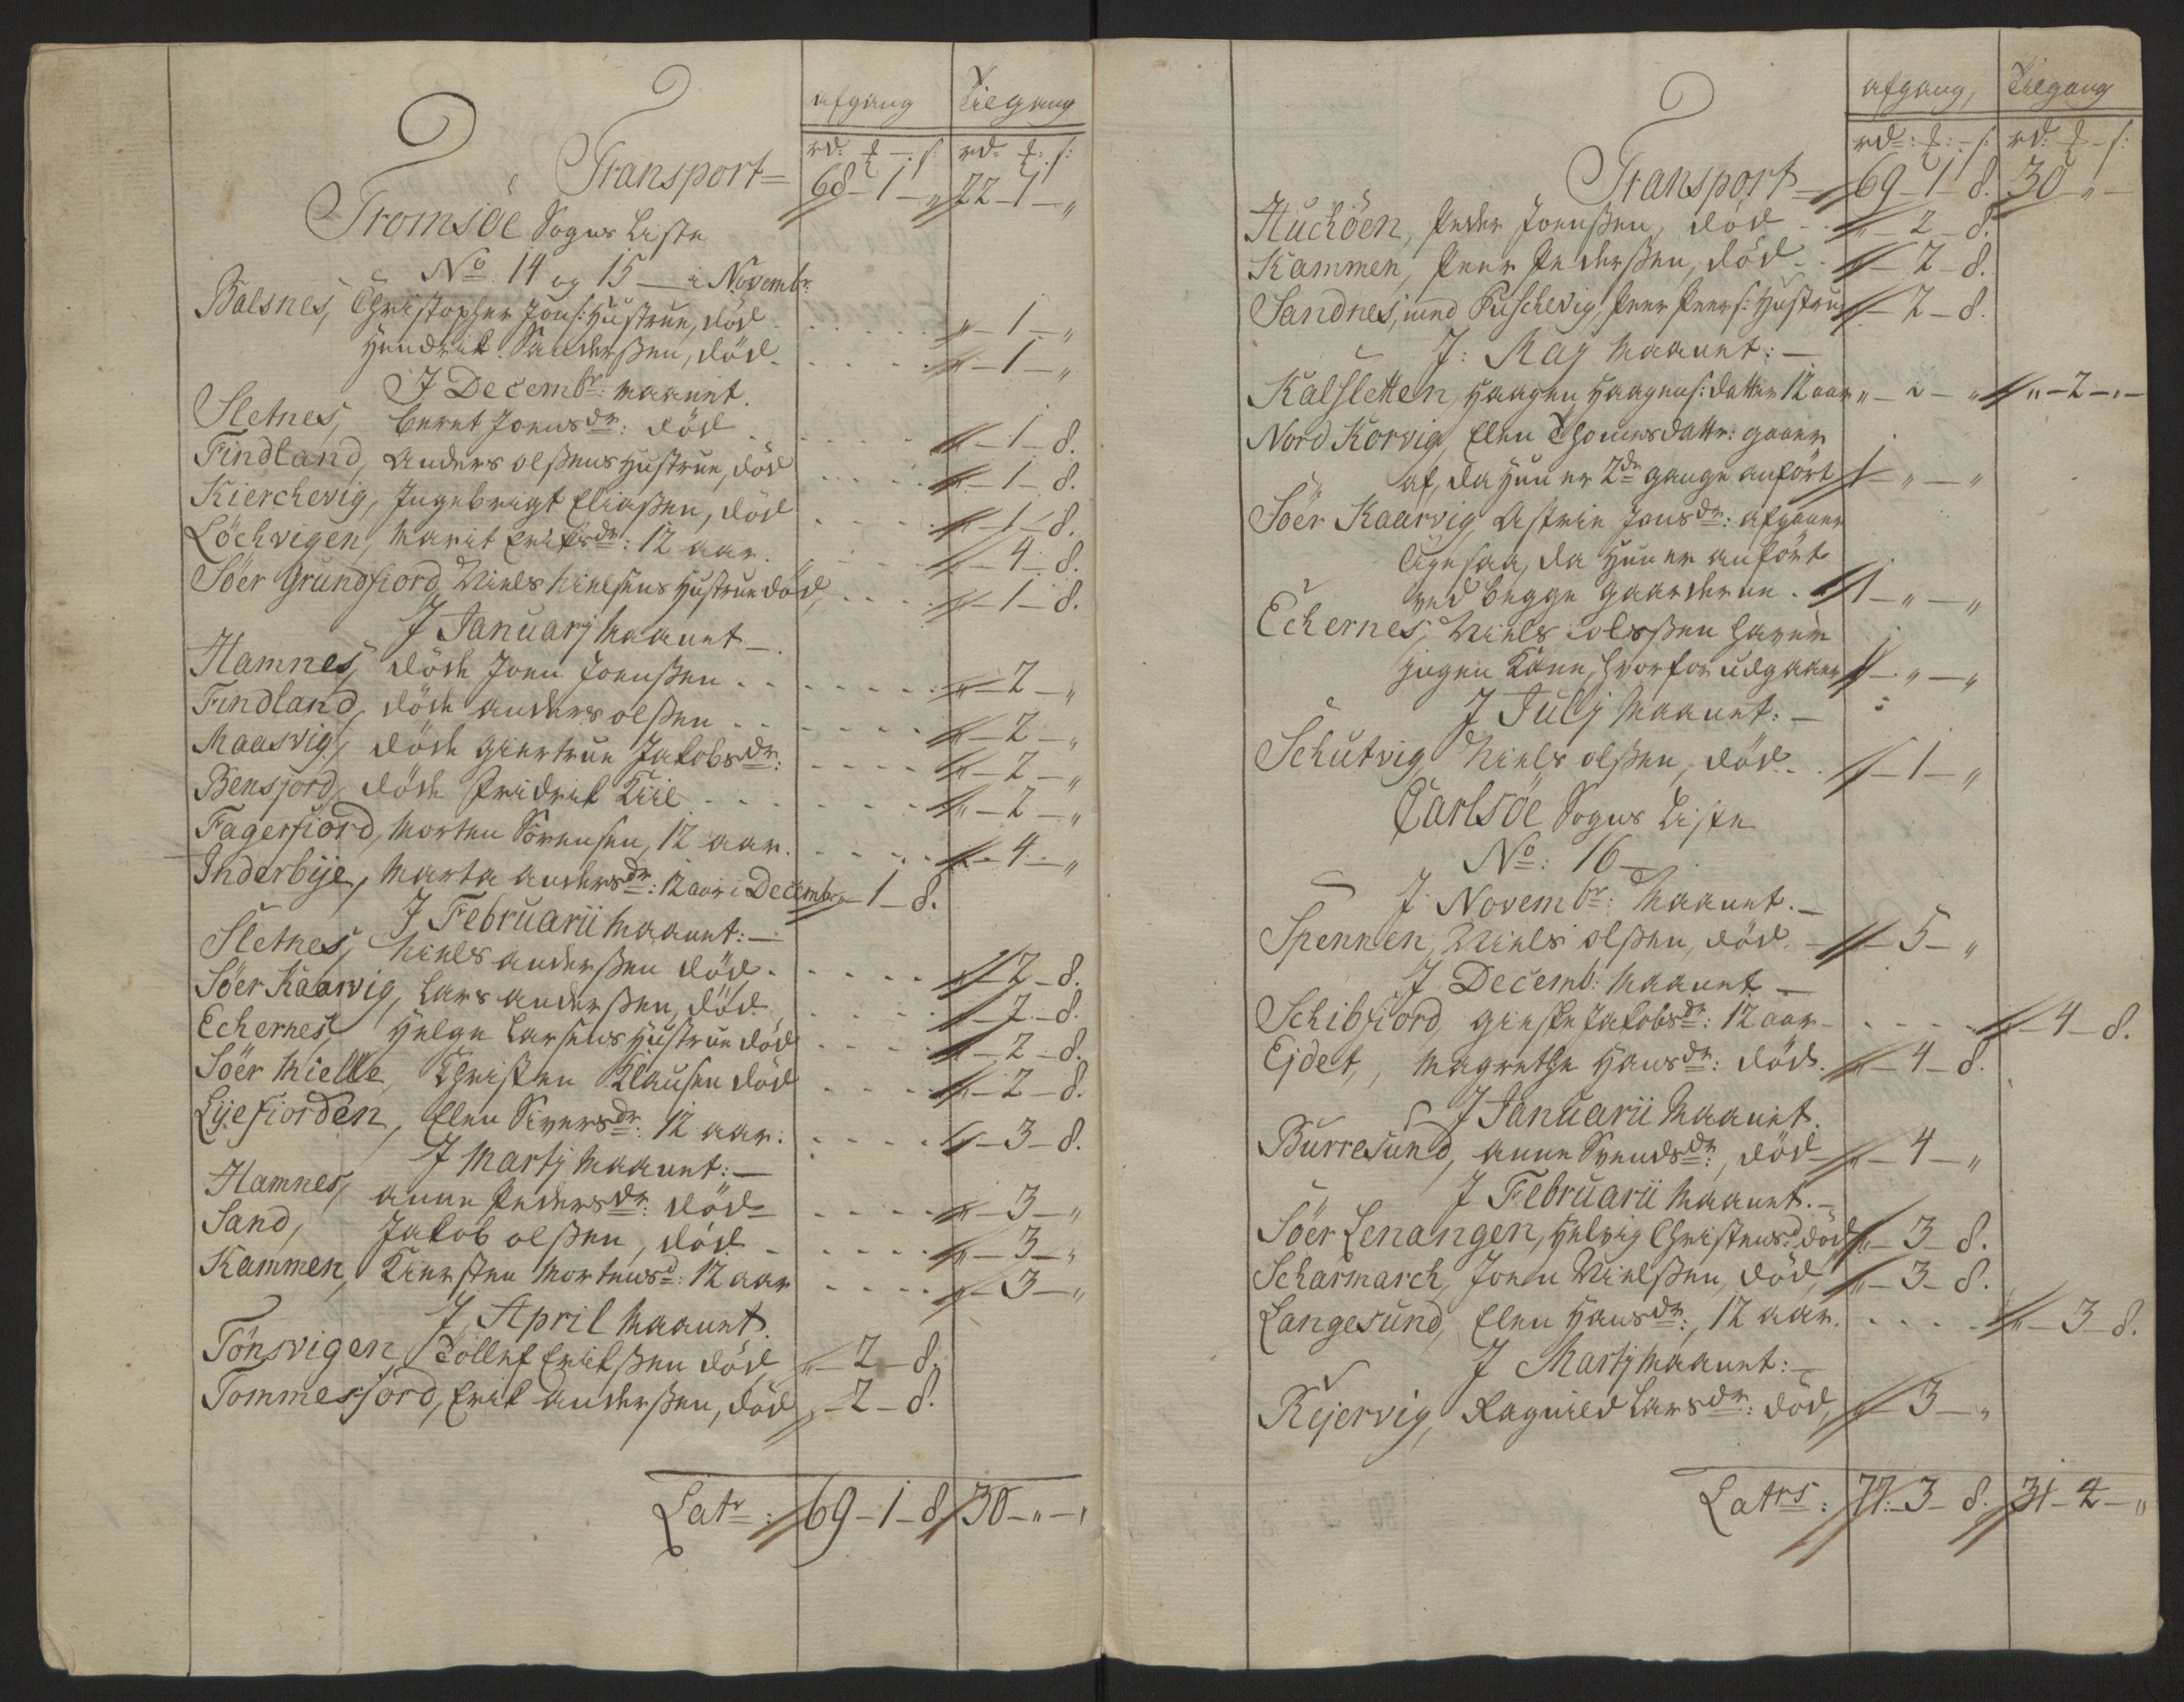 afgang Tilgang
rd: ƒ - s: rd: ƒ: s:
Transport = 68-1-„ 22-1-„
Tromsöe Sogns Liste
No 14 og 15 — i Novembr:
Balsnes, Christopher Jons: Hustrue, död - - - - „-1-„
Hendrik Sanderssen, död - - - - „-1-„
J Decembr: Maanet.
Sletnes, Beret Joensdr: död - - - - „-1-8.
Findland, Anders Olssens Hustrue, död - - - - „-1-8.
Kierchevig, Ingebrigt Eliassen, död - - - - „-1-8.
Löchvigen, Marit Eriksdr: 12 aar. - - - - „-4-8.
Söer Grundfiord, Niels Nielsens Hustrue död, - - - - „-1-8.
J Januarj Maanet —
Hamnes, döde Joen Joenssen - - - - „-2-„
Findland, döde Anders Olssen - - - - „-2-„
Maasvig, döde Giertrue Jakobsdr: - - - - „-2-„
Bensjord, döde Fridrik Kiil - - - - „-2-„
Fagerfiord, Morten Sörensen, 12 aar. - - - - „-4-„
Inderbye, Marta Andersdr: 12 aar i Decembr „-1-8.
J Februarii Maanet: —
Sletnes, Niels Anderssen död. - - - - „-2-8.
Söer Kaarvig, Lars Anderssen, död - - - - „-2-8.
Echernes, Helge Larsens Hustrue död - - - - „-2-8.
Söer Mielle, Christen Klausen död - - - - „-2-8.
Lyefiorden, Elen Siversdr: 12 aar: - - - - „-3-8.
J Martj Maanet: —
Hamnes, Anne Pedersdr: död - - - - „-3-„
Sand, Jakob Olssen, död - - - - „-3-„
Kammen, Kiersten Mortensd: 12 aar - - - - „-3-„
J April Maanet.
Tönsvigen, Tollef Erikssen död, „-2-8.
Tommesjord, Erik Anderssen, död „-2-8.
Latr: 69-1-8. 30-„-„
afgang, Tilgang
rd: ƒ: - s: rd: ƒ - s:
Transport = 69-1-8. 30-„-
Huchöen, Peder Joenssen, död - - „-2-8.
Kammen, Peer Pederssen, död - - „-2-8.
Sandnes, ved Puschevig, Peer Peers: Hustrue „-2-8.
J: Maj Maanet: —
Kalsletten, Haagen Haagens: datter 12 aar „-„-„ „-2-„
Nord Korvig, Elen Thomesdattr: gaaer
af, da Hun er 2de gange anfört 1-„-„
Söer Kaarvig Astrie Jonsdr: afgaaer
ligesaa, da Hun er anfört
ved begge gaarderne. 1-„-„
Echernes, Niels Olssen haver
ingen Kone, hvorfor udgaaer 1-„-„
J Julj Maanet: —
Schutvig Niels Olssen, död - - „-1-„
Carlsöe Sogns Liste
No: 16 —
J Novembr: Maanet. —
Spennen, Niels Olssen, död. - „-5-„
J Decemb: Maanet —
Schibfiord, Giertje Jakobsdr: 12 aar - - - - „-4-8.
Ejdet, Magrethe Hansdr: död. „-4-8.
J Januarii Maanet.
Burresund, Anne Svendsdr:, död - „-4-„
J Februarii Maanet. —
Söer Lenangen, Helvig Christensd: död „-3-8.
Scharmarch, Joen Nielssen, död, „-3-8.
Langesund, Elen Hansdr:, 12 aar. - - - - „-3-8.
J Martj Maanet: —
Rejervig, Ragnild Larsdr: död, „-3-„
Latrs: 77-3-8. 31-4-„